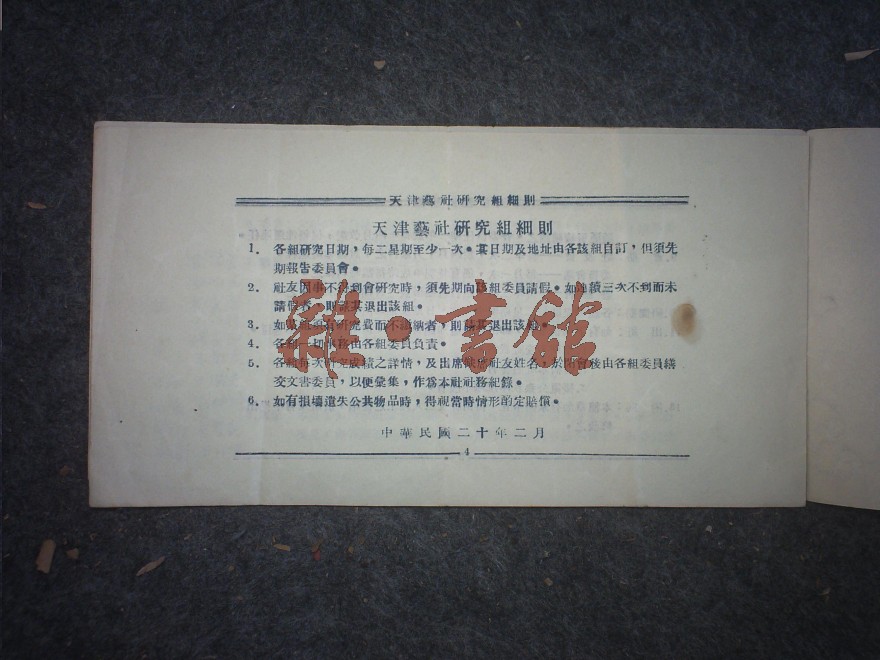 天津藝社研究組細則
天津藝社研究組細則
1. 各組研究日期，每二星期至少一次。其日期及地址由各該組自訂，但須先
期報告委員會。
2. 社友因事不得到會研究時，須先期向該組委員請假。如連續三次不到而未
請假者，則請其退出該組。
3. 如該組須有研究費而不繳納者，則請其退出該組。
4. 各組一切事務由各組委員負責。
5. 各組每次研究成績之詳情，及出席缺席社友姓名，於閉會後由各組委員繕
交文書委員，以便彙集，作爲本社社務紀錄。
6. 如有損壞遺失公共物品時，得視當時情形酌定賠償。
中華民國二十年二月
4
雜·書館